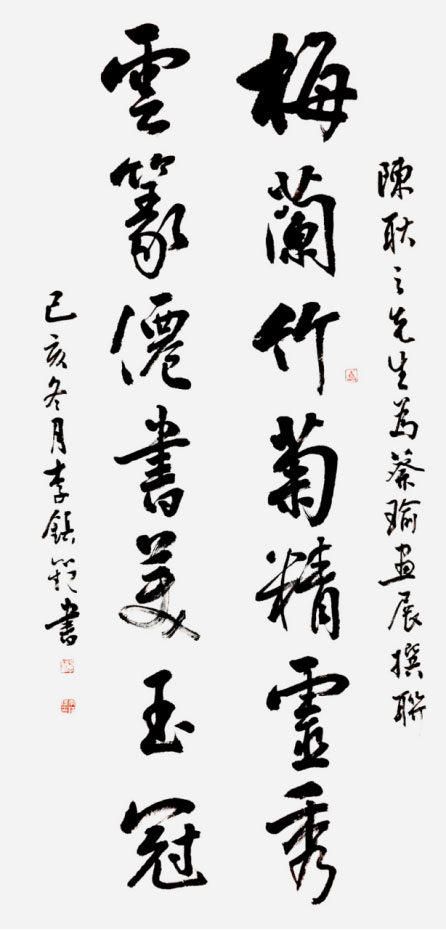 陳耿之先生為蔡瑜画展撰聯
梅蘭竹菊精靈秀
雲篆僊書美玉冠
己亥冬月李鎮範書